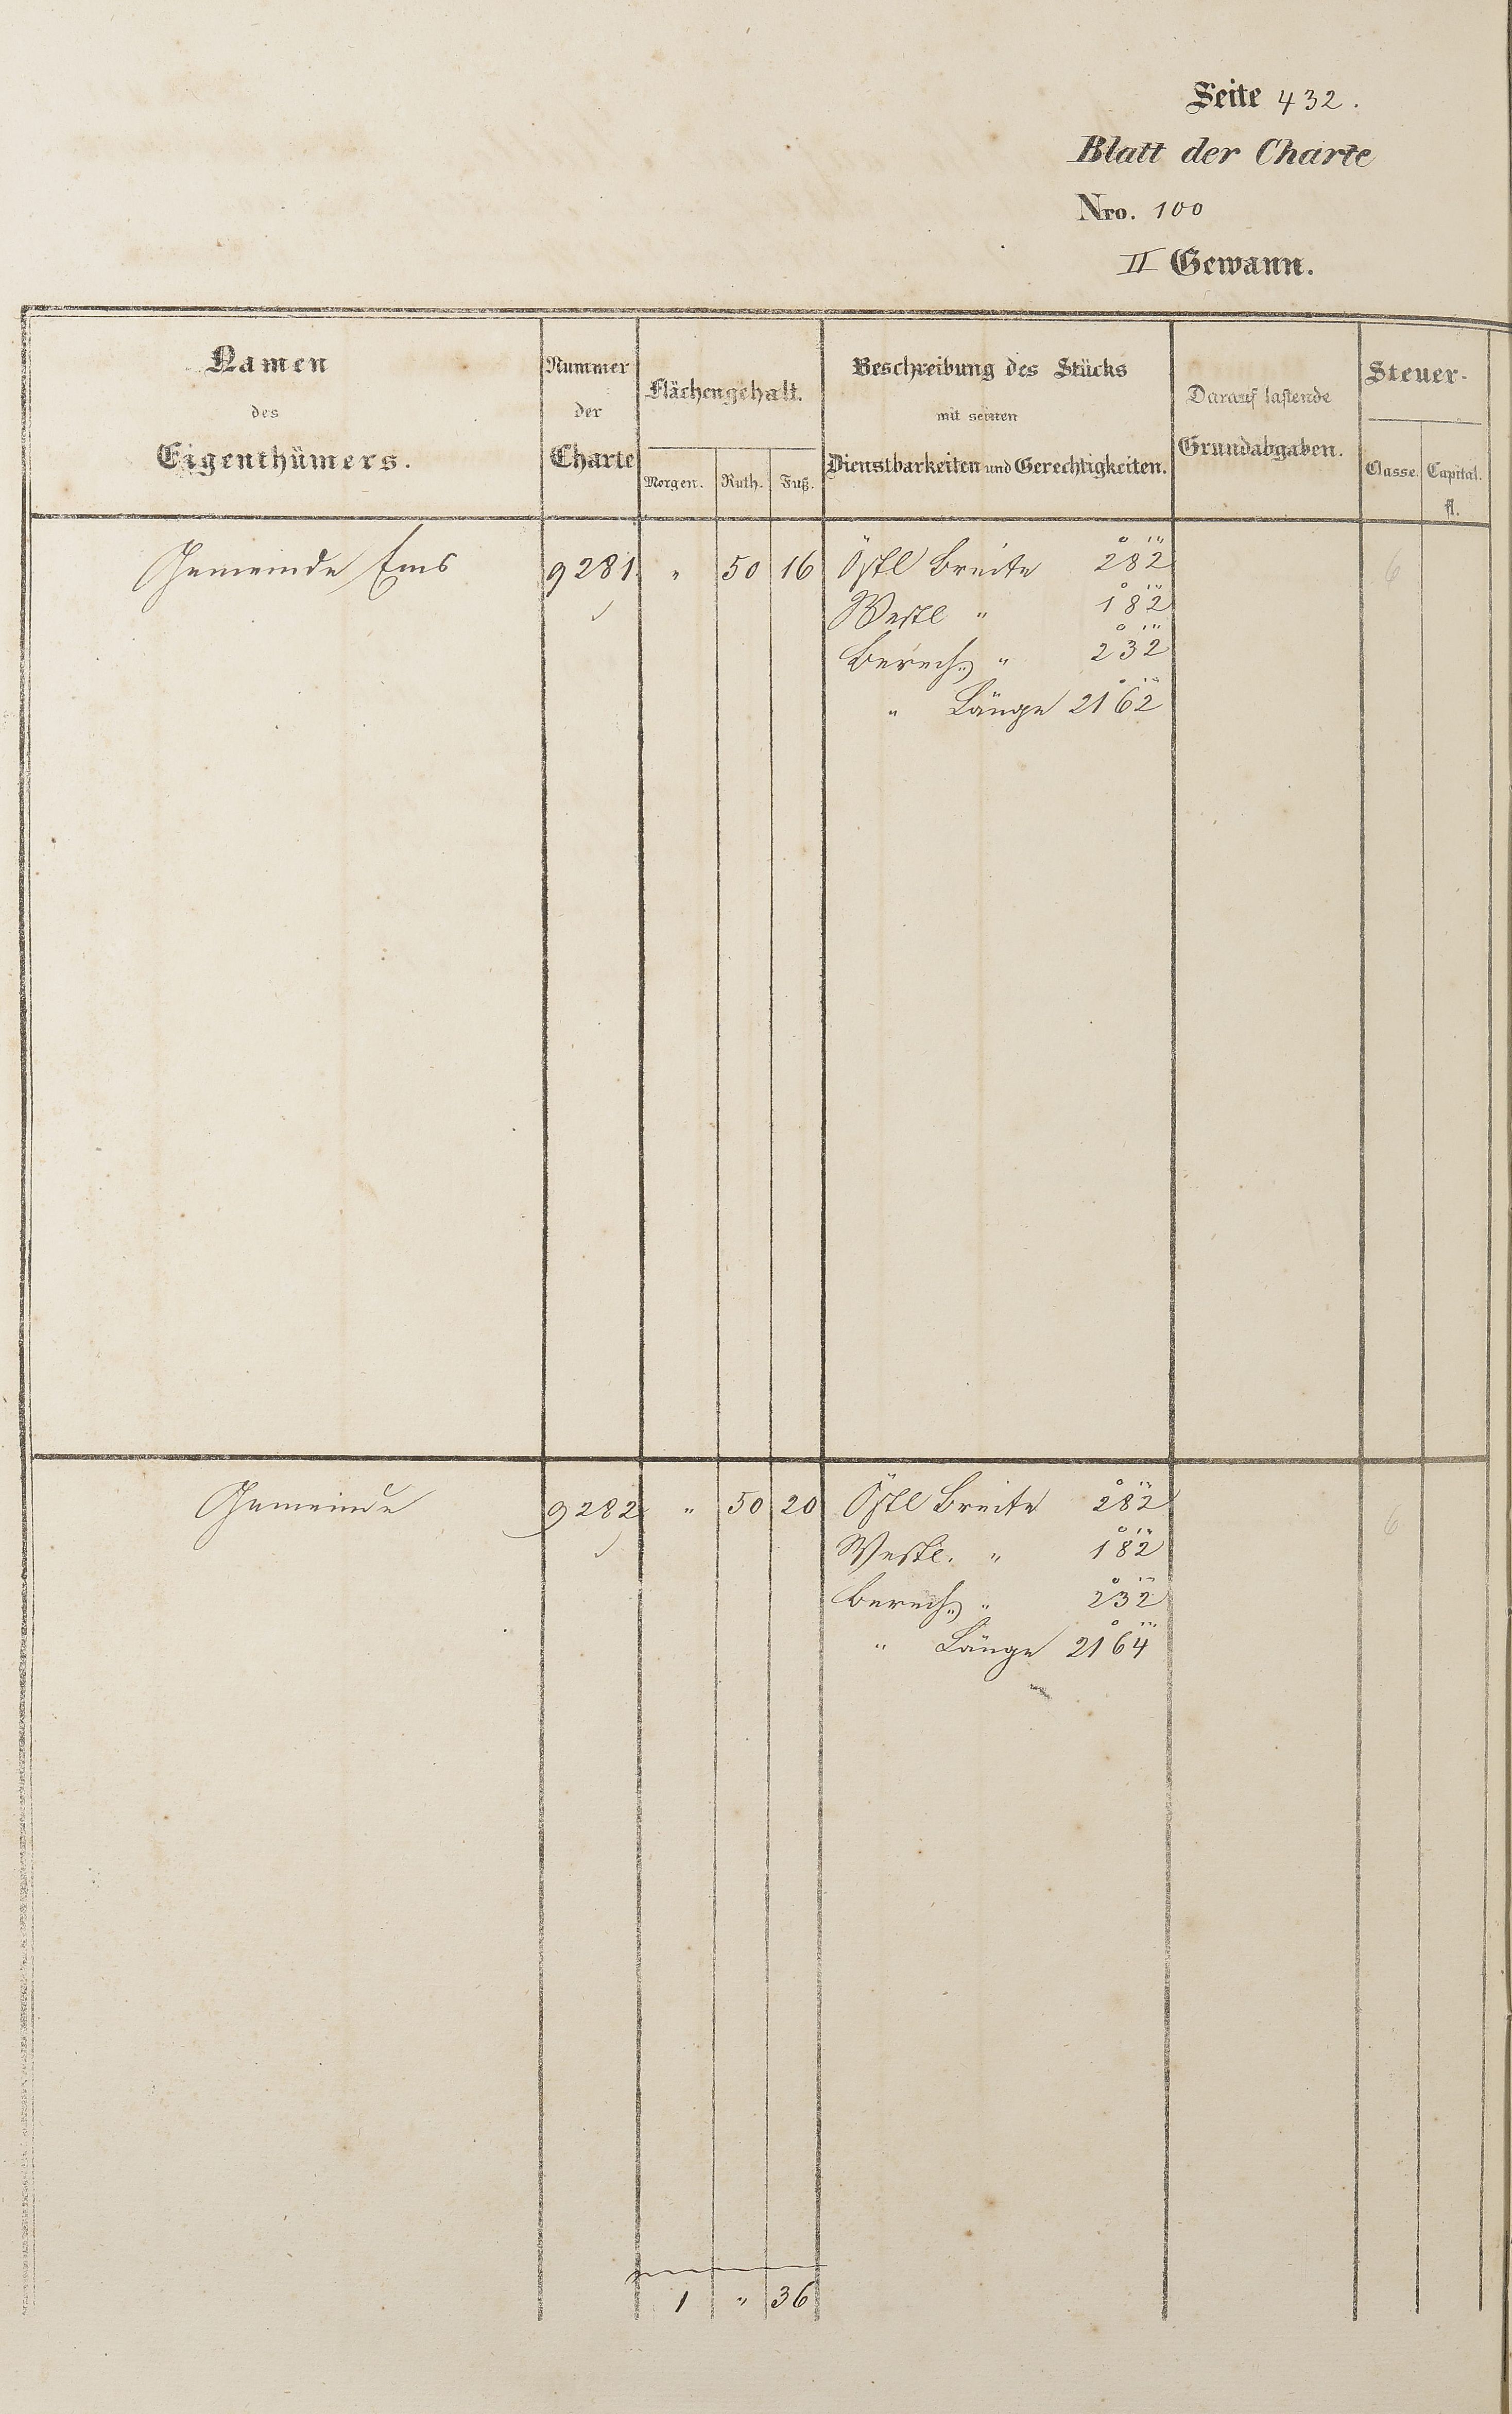 Seite 432.
Blatt der Charte
Nro. 100
II Gewann.
Namen
des
Eigenthümers.
Nummer
der
Charte
Flächengehalt.
Morgen. Ruth. Fuß.
Beschreibung des Stücks
mit seinen
Dienstbarkeiten und Gerechtigkeiten.
Darauf lastende
Grundabgaben.
Steuer-
Classe. Capital.
fl.
Gemeinde Ems 9281 " 50 16 Östl Breite 2°82''' 6
Westl " 1°82'''
Berech: " 2°32'''
" Länge 21°62'''
Gemeinde 9282 " 50 20 Östl Breite 2°82''' 6
Westl. " 1°82'''
Berech: " 2°32'''
" Länge 21°64'''
1 " 36